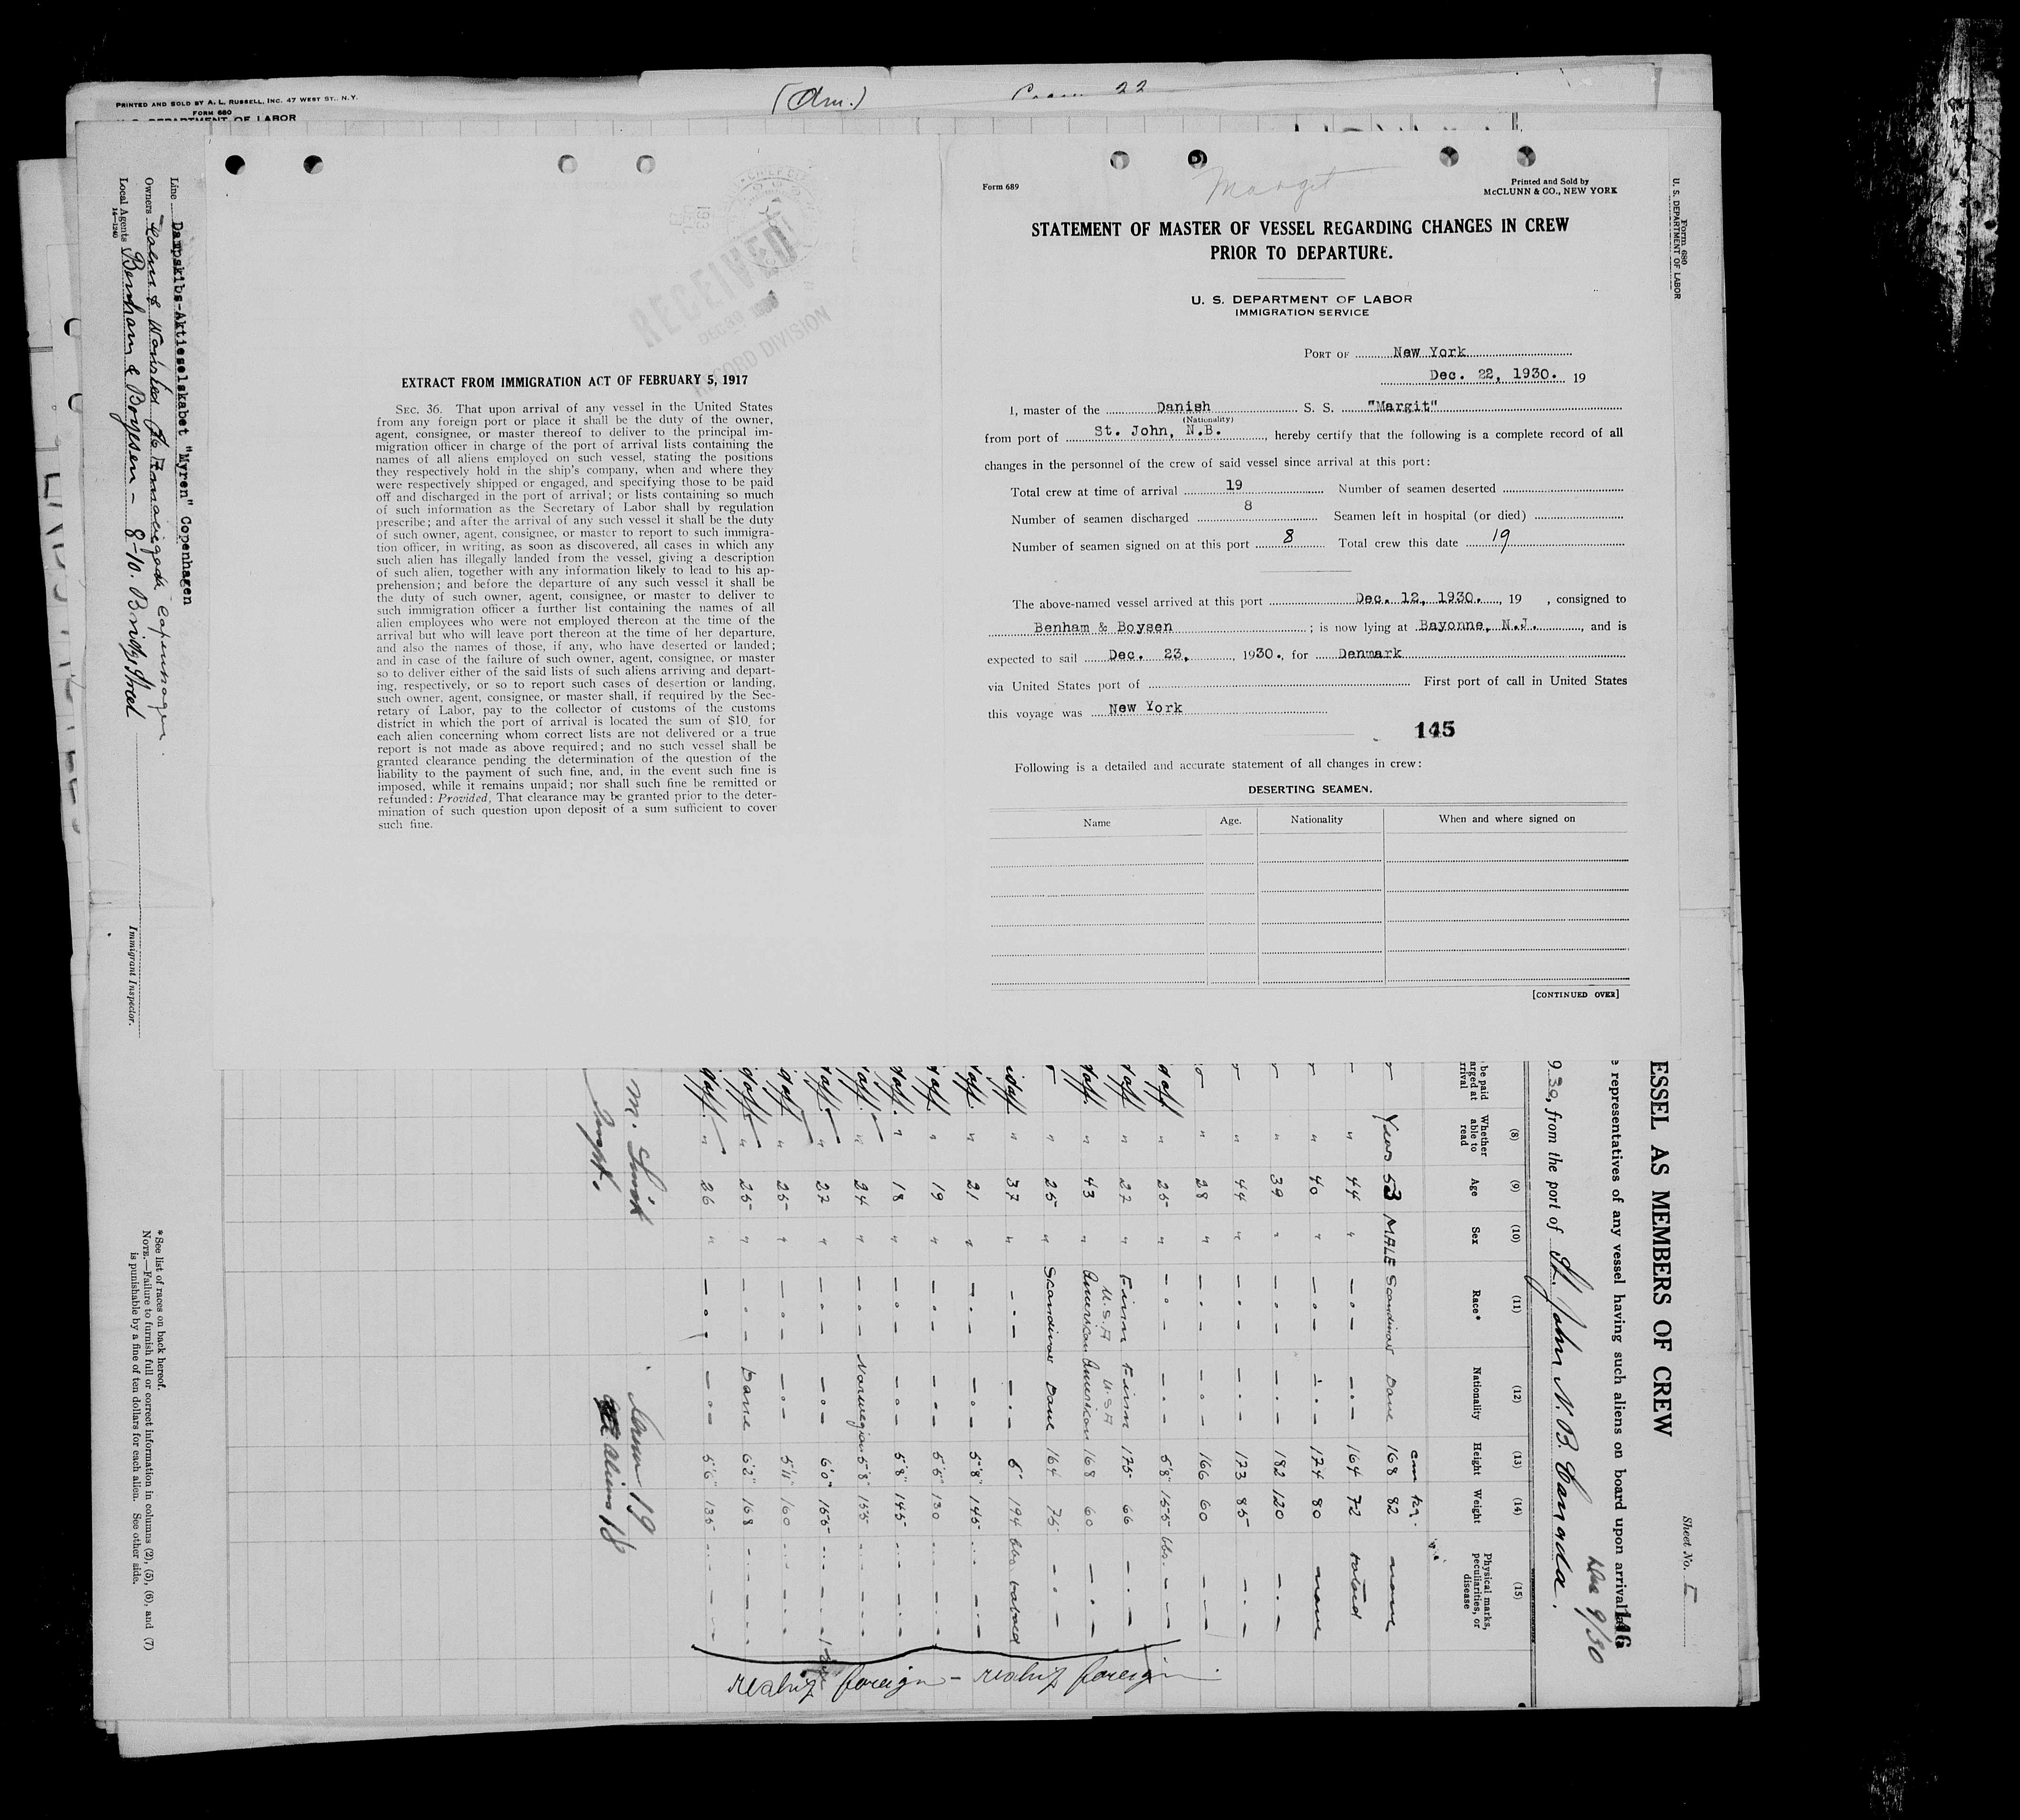 (Am.)
PRINTED AND SOLD BY A. L. RUSSELL, INC. 47 WEST ST., N. Y.
FORM 680
U. S. DEPARTMENT OF LABOR
Line Dampskibs-Aktieselskabet "Myren" Copenhagen
Owners
Copenhagen.
Local Agents Benham & Boyesen - 8-10. Bridge Street
14-1240
Immigrant Inspector.
RECEIVED
DEC 30 1930
RECORD DIVISION
EXTRACT FROM IMMIGRATION ACT OF FEBRUARY 5, 1917
SEC. 36. That upon arrival of any vessel in the United States
from any foreign port or place it shall be the duty of the owner,
agent, consignee, or master thereof to deliver to the principal im-
migration officer in charge of the port of arrival lists containing the
names of all aliens employed on such vessel, stating the positions
they respectively hold in the ship's company, when and where they
were respectively shipped or engaged, and specifying those to be paid
off and discharged in the port of arrival; or lists containing so much
of such information as the Secretary of Labor shall by regulation
prescribe; and after the arrival of any such vessel it shall be the duty
of such owner, agent, consignee, or master to report to such immigra-
tion officer, in writing, as soon as discovered, all cases in which any
such alien has illegally landed from the vessel, giving a description
of such alien, together with any information likely to lead to his ap-
prehension; and before the departure of any such vessel it shall be
the duty of such owner, agent, consignee, or master to deliver to
such immigration officer a further list containing the names of all
alien employees who were not employed thereon at the time of the
arrival but who will leave port thereon at the time of her departure,
and also the names of those, if any, who have deserted or landed;
and in case of the failure of such owner, agent, consignee, or master
so to deliver either of the said lists of such aliens arriving and depart-
ing, respectively, or so to report such cases of desertion or landing,
such owner, agent, consignee, or master shall, if required by the Sec-
retary of Labor, pay to the collector of customs of the customs
district in which the port of arrival is located the sum of $10 for
each alien concerning whom correct lists are not delivered or a true
report is not made as above required; and no such vessel shall be
granted clearance pending the determination of the question of the
liability to the payment of such fine, and, in the event such fine is
imposed, while it remains unpaid; nor shall such fine be remitted or
refunded: Provided, That clearance may be granted prior to the deter-
mination of such question upon deposit of a sum sufficient to cover
such fine.
Margit
Form 689
Printed and Sold by
McCLUNN & CO., NEW YORK
STATEMENT OF MASTER OF VESSEL REGARDING CHANGES IN CREW
PRIOR TO DEPARTURE.
U. S. DEPARTMENT OF LABOR
IMMIGRATION SERVICE
PORT OF New York
Dec. 22, 1930. 19
I, master of the Danish S. S. "Margit"
(Nationality)
from port of St. John, N.B., hereby certify that the following is a complete record of all
changes in the personnel of the crew of said vessel since arrival at this port:
Total crew at time of arrival 19 Number of seamen deserted
Number of seamen discharged 8 Seamen left in hospital (or died)
Number of seamen signed on at this port 8 Total crew this date 19
The above-named vessel arrived at this port Dec. 12, 1930., 19 , consigned to
Benham & Boysen ; is now lying at Bayonne, N.J., and is
expected to sail Dec. 23, 1930., for Denmark
via United States port of First port of call in United States
this voyage was New York
145
Following is a detailed and accurate statement of all changes in crew:
DESERTING SEAMEN.
Name Age. Nationality When and where signed on
[CONTINUED OVER]
Form 680
U. S. DEPARTMENT OF LABOR
Sheet No. I
ESSEL AS MEMBERS OF CREW
representatives of any vessel having such aliens on board upon arrival
146
9/30
1930, from the port of St. John N.B. Canada.
(8) (9) (10) (11) (12) (13) (14) (15)
Whether able to read Age Sex Race* Nationality Height Weight Physical marks, peculiarities, or disease
cm kg.
53 MALE Scandinav Dane 168 82 none
" 44 " 164 72
" 40 " 174 80 none
" 39 " 182 120
" 44 " 173 85
" 28 " 166 60
" 25 " 5'8" 155 lbs.
" 27 " Finn Finn 175 66
U.S.A U.S.A
" 43 " American American 168 60
" 25 " Scandinav Dane 164 75
" 37 " 6' 194 lbs
" 21 " 5'8" 145
" 19 " 5'5" 130
" 18 " 5'8" 145
" 24 " Norwegian 5'8" 155
" 27 " 6'0" 155
" 25 " 5'11" 160
" 25 " Dane 6'2" 168
" 26 " 5'6" 135
reship foreign - reship foreign
19
Aliens 18
*See list of races on back hereof.
NOTE.—Failure to furnish full or correct information in columns (2), (5), (6), and (7)
is punishable by a fine of ten dollars for each alien. See other side.